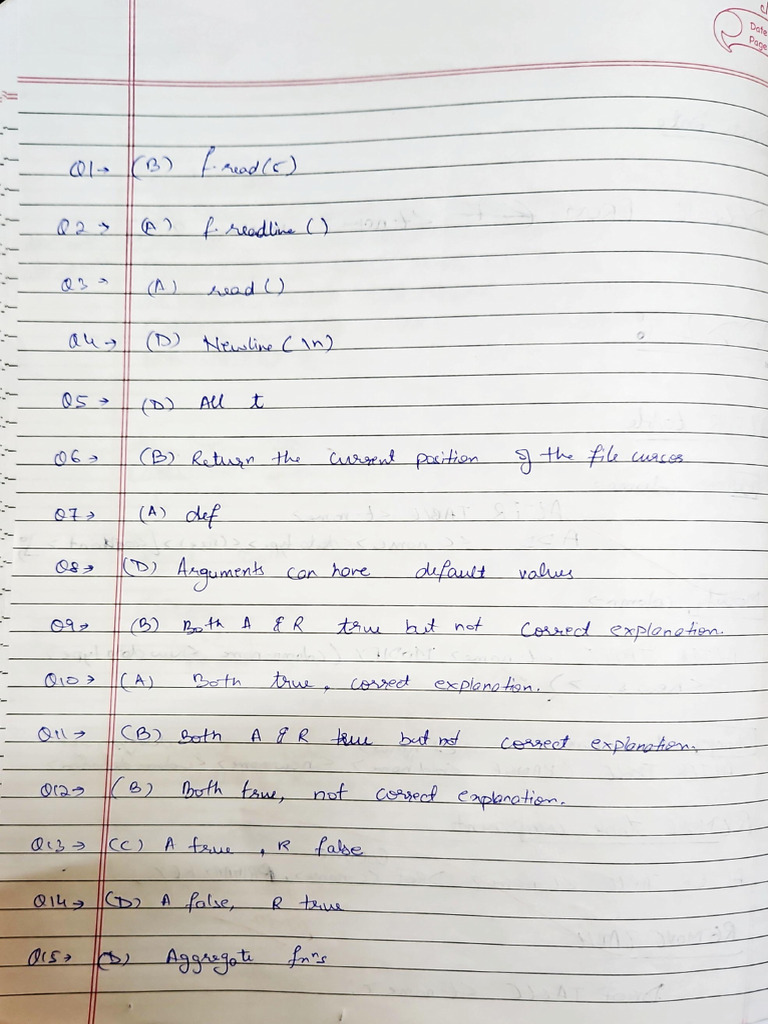 Date
Page
Q1→ (B) f.read(5)
Q2→ (A) f.readline()
Q3→ (A) read()
Q4→ (D) Newline(\n)
Q5→ (D) All t
Q6→ (B) Return the current position of the file cursor
Q7→ (A) def
Q8→ (D) Arguments can have default values
Q9→ (B) Both A & R true but not correct explanation.
Q10→ (A) Both true, correct explanation.
Q11→ (B) Both A & R true but not correct explanation.
Q12→ (B) Both true, not correct explanation.
Q13→ (C) A true, R false
Q14→ (D) A false, R true
Q15→ (D) Aggregate fnⁿs